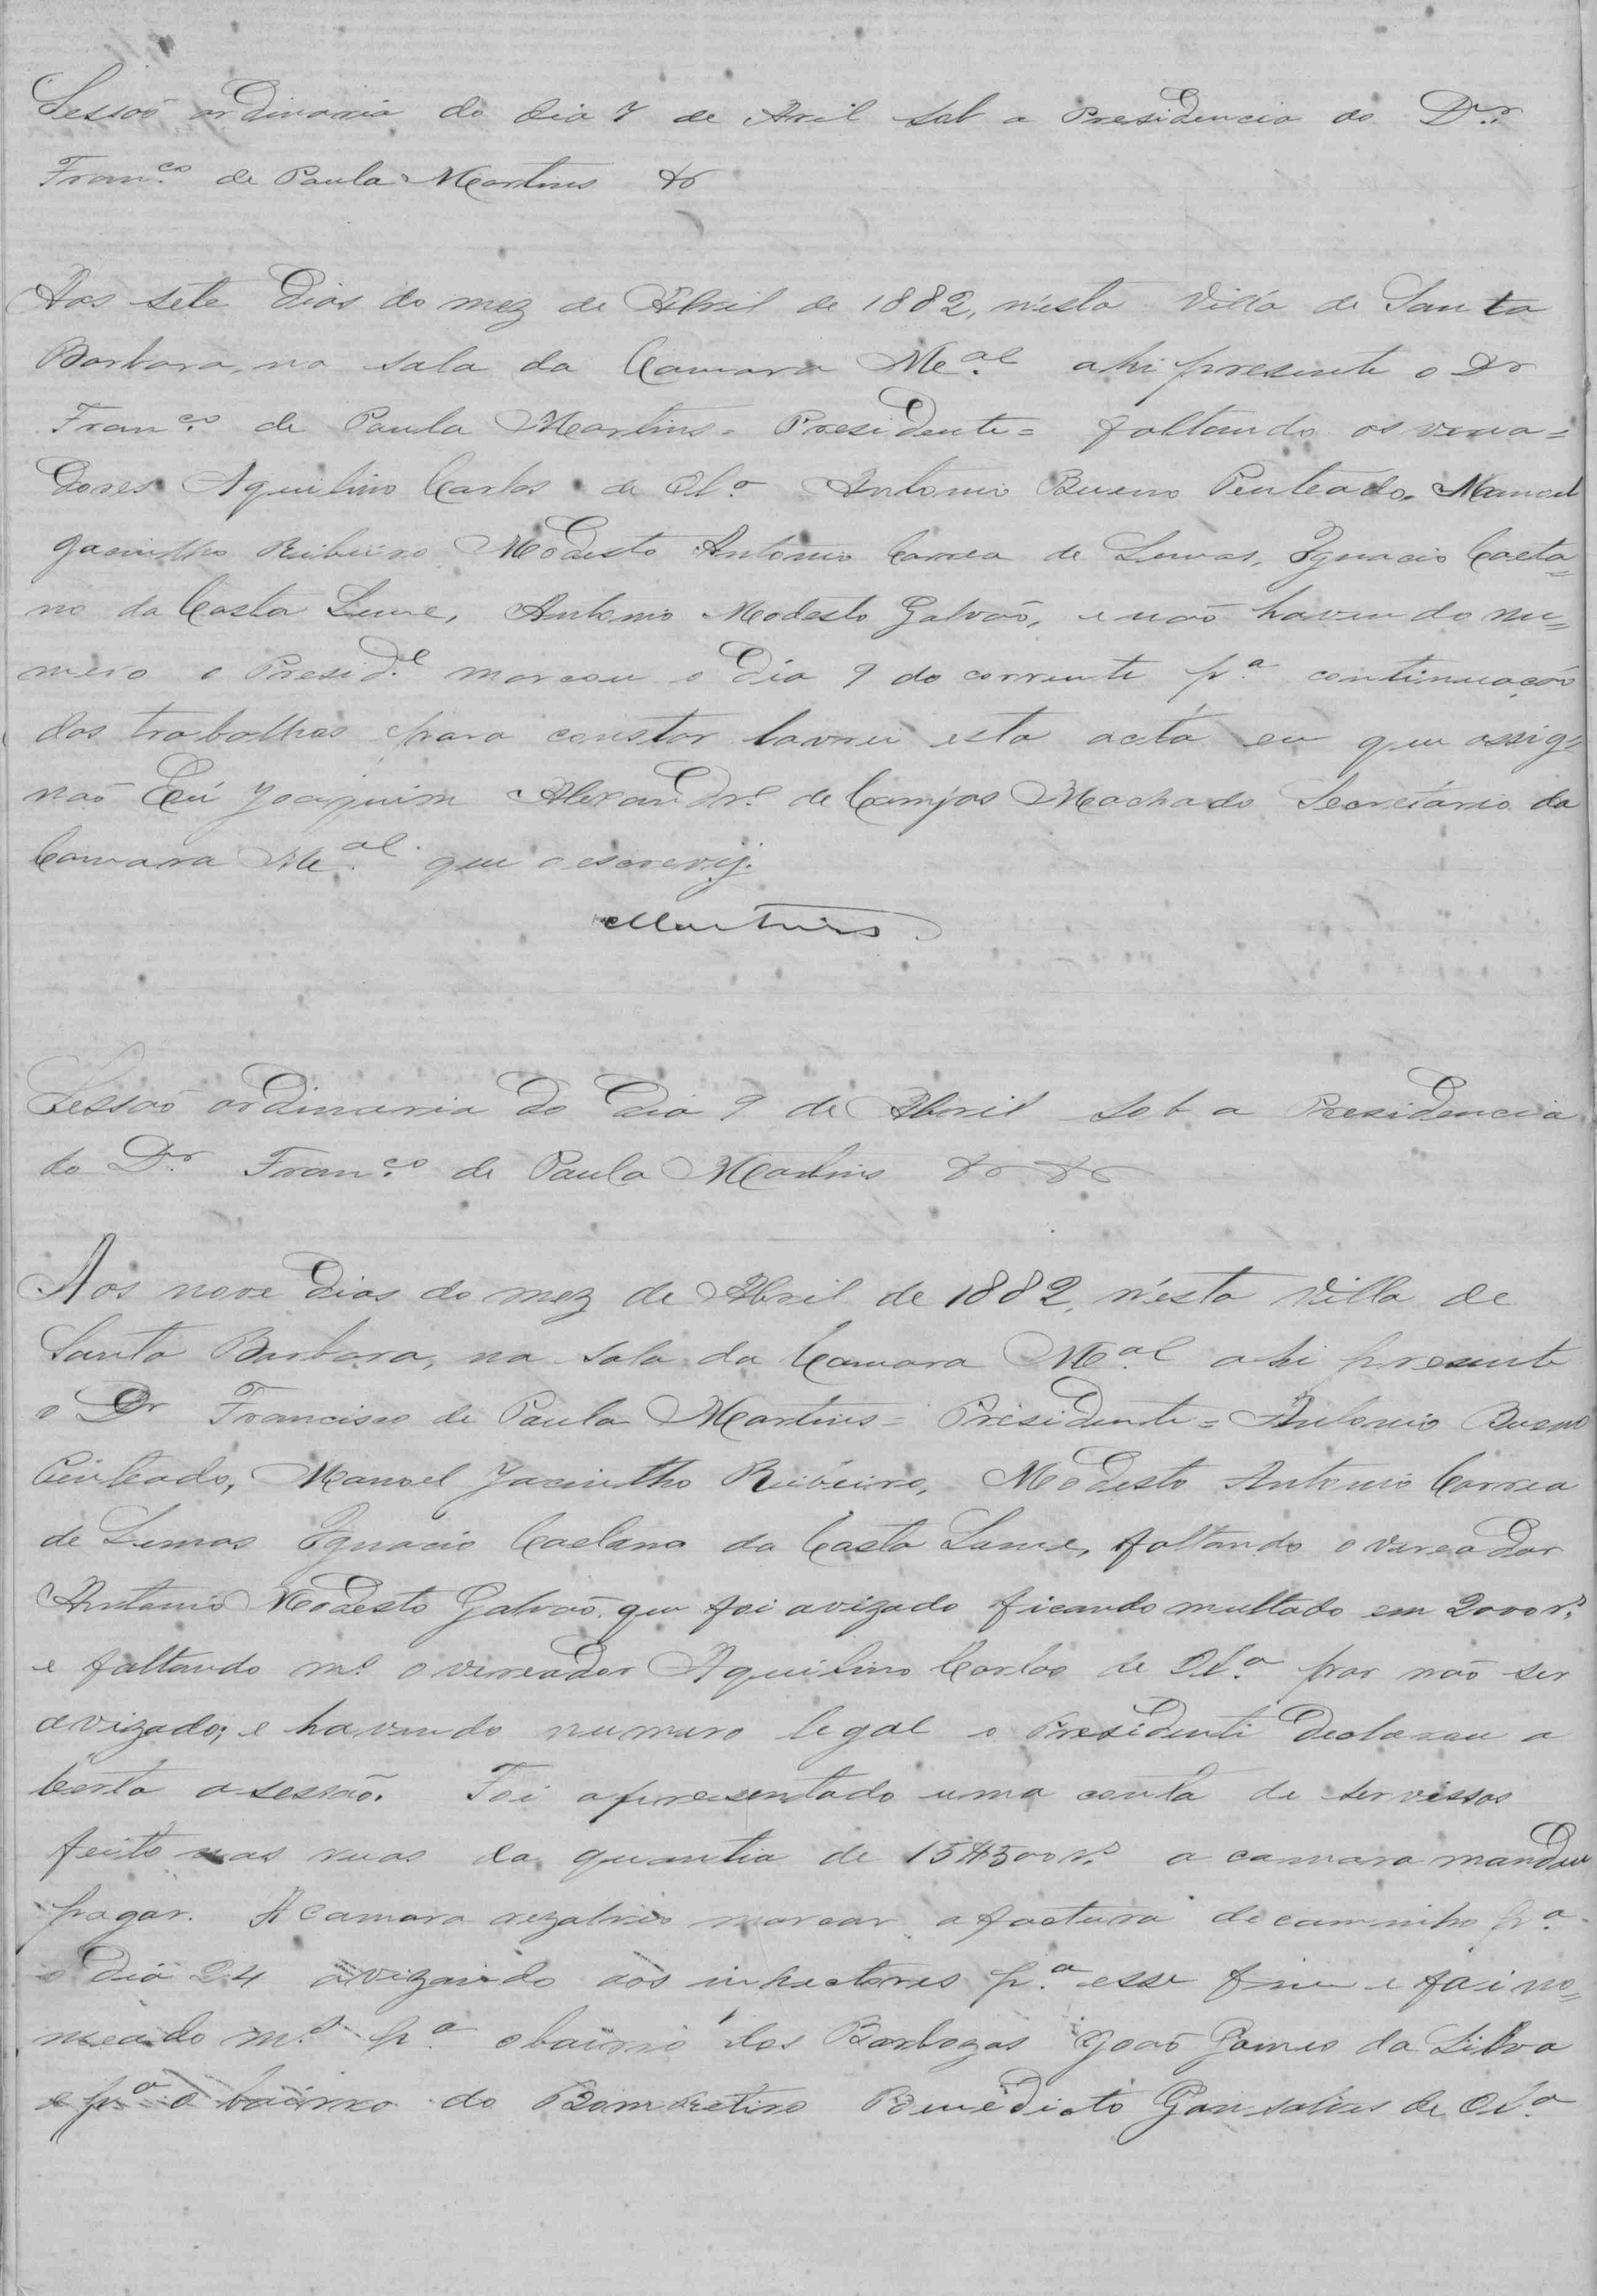 Sessaõ ordinaria do dia 7 de Aril sob a Presidencia do D.r
Fran.co de Paula Martins &
Aos sete dias do mez de Abril de 1882, n'esta Villa de Santa
Barbara, na sala da Camara M.al ahi presente o Dr
Fran.co de Paula Martins = Presidente = faltando os verea=
dores Aquilino Carlos de Ol.a Antonio Bueno Penteado. Manoel
Jacintho Ribeiro Modesto Antonio Correa de Lemos, Ignacio Caeta=
no da Costa Leme, Antonio Modesto Galvaõ, e naõ havendo nu=
mero o Presid.e marcou o dia 9 do corrente p.a continuaçaõ
dos trabalhos para constar lavrei esta acta em que assig=
naõ Eu Joaquim Alexandr.e de Campos Machado Secretario da
Camara M.al que o escrevij.
Martins
Sessaõ ordinaria do dia 9 de Abril sob a Presidencia
do D.r Fran.co de Paula Martins & &
Aos nove dias do mez de Abril de 1882, n'esta Villa de
Santa Barbara, na sala da Camara M.al ahi presente
o Dr Francisco de Paula Martins = Presidente = Antonio Bueno
Penteado, Manoel Jacintho Ribeiro, Modesto Antonio Correa
de Lemos Ignacio Caetano da Costa Leme, faltando o vereador
Antonio Modesto Galvaõ, que foi avizado ficando multado em 2000 r.s
e faltando m.o o vereador Aquilino Carlos de Ol.a por naõ ser
avizado; e havendo numero legal o Presidente declarou a
berta a sessaõ. Foi apresentado uma conta de servissos
feito nas ruas da quantia de 15#500 r.s a camara mandou
pagar. A Camara rezolveo marcar a factura de caminho p.a
o dia 24 avizando aos inhectores p.a esse fim e foi no=
meado m.o p.a o bairro dos Barbozas Joaõ Gomes da Silva
e p.a o bairro do Bom Retiro Benedicto Gonsalves de Ol.a